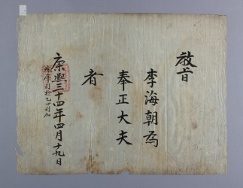 敎旨
李海朝爲
奉正大夫
者
康熙三十四年四月十九日